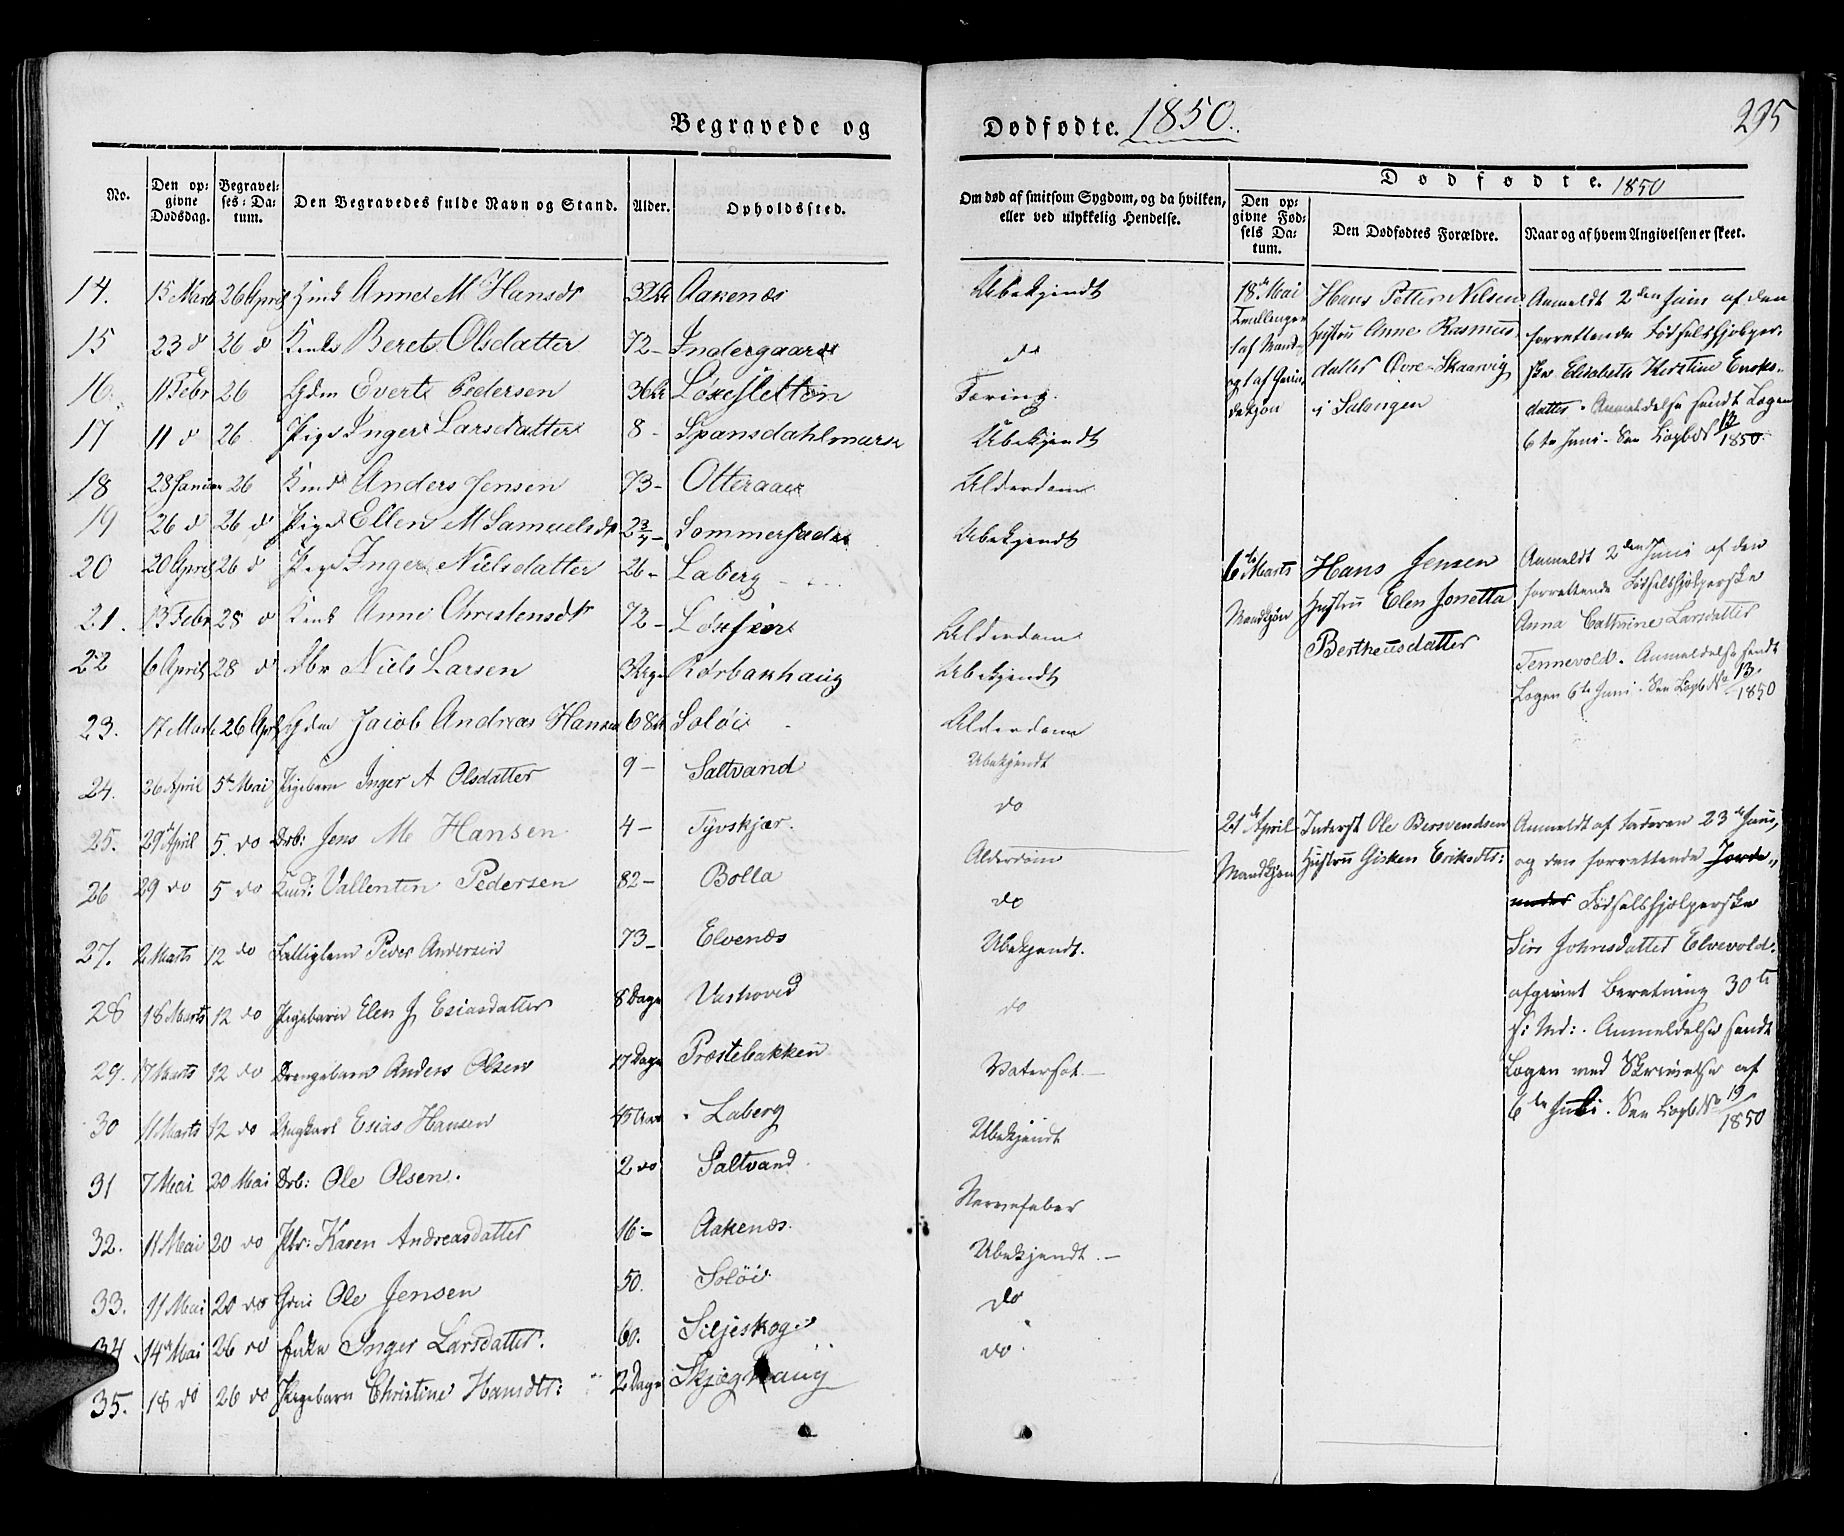 Begravede og Dødfødte. 1850. 295
No. Den opgivne Dødsdag. Begravelses-Datum. Den Begravedes fulde Navn og Stand. Alder. Opholdssted. Om død af smitsom Sygdom, og da hvilken, eller ved ulykkelig Hendelse.
14. 15 Marts 26 April Anne M Hansdt 32 Aakenæs Ubekjendt
15 23 d 26 d Beret Olsdatter 72 - Indergaard do
16. 11 Febr 26 Gdm Evert Pedersen 36 Løksletten Tæring.
17 11 d 26 Pige Inger Larsdatter 8 - Spansdahlmark Ubekjendt
18 28 Januar 26 Anders Jensen 73 - Otteraae Alderdom
19 26 d 26 d Pige Ellen M Samuelsdt 2 3/4 - Sommersæde Ubekjendt
20 20 April 26 d Pige Inger Nielsdatter 26 - Laberg
21. 13 Febr 28 d Anne Christensdt 72 - Løksjær Alderdom
22 6 April 28 d Dbr Niels Larsen 3 Rørbakhaug Ubekjendt
23. 17 Mart 26 Apr Gdm Jacob Andreas Hansen 68 Soløi Alderdom
24. 26 April 5te Mai Pigebarn Inger A Olsdatter 9 - Saltvand Ubekjendt
25. 29de April 5. do Drb: Jens M Hansen 4 - Tyvskjær. do
26 29 do 5 do Vallentin Pedersen 82 - Bolla Alderdom
27. 2 Marts 12 do Fattiglem Peder Andersen 73 - Elvenæs do
28 18 Marts 12 do Pigebarn Elen J Esiasdatter 8 Dage Vashoved Ubekjendt.
29. 17 Marts 12 do Drengebarn Anders Olsen 17 Dage Præstebakken do
30 11 Marts 12 do Ungkarl Esias Hansen Laberg Vatersot. -
31 7 Mai 20 Mai Drb: Ole Olsen. 2 do Saltvand Ubekjendt
32. 11 Mai 20 do Pbr: Karen Andreasdatter 16 - Aakenæs. Nervefeber
33. 11 Mai 20 do Ole Jensen 50. Soløi Ubekjendt. -
34 14de Mai 26 do Enke Inger Larsdatter. 60. Siljeskog do
35. 18 do 26 do Pigebarn Christine Hansdt: 2 Dage Skjæghaug do.
Dødfødte. 1850
Den opgivne Fødsels Datum. Den Dødfødtes Forældre. Naar og af hvem Angivelsen er skeet.
18de Mai
Tvillinger
1 af Mand-
og 1 af Qvin-
dekjøn
Hans Petter Nilsen
Hustru Anne Rasmus-
datter Øvre-Skaarvig
i Salangen
Anmeldt 2den Juni af den
forrettende Fødselshjelper-
ske Elisabeth Kirstine Enoks-
datter. Anmeldelse sendt Logen
6te Juni. See Logb No 12/1850.
6te Marts
Mandkjøn
Hans Jensen
Hustru Elen Jonetta
Bertheusdatter
Anmeldt 2den Juni af den
forrettende Fødselshjelperske
Anna Cathrine Larsdatter
Tennevold. Anmeldelse sendt
Logen 6te Juni. See Logb No 13/1850
21de April
Mandkjøn
Inderst Ole Bersvendsen
Hustru Gisken Eriksdtr:
Anmeldt af Faderen 23de Juni,
og den forrettende Jorde-
moder Fødselshjelperske
Siri Johnsdatter Elvevold.
afgivet Beretning 30te
s: Md: Anmeldelse sendt
Logen med Skrivelse af
6te Juli. See Logb No 19/1850